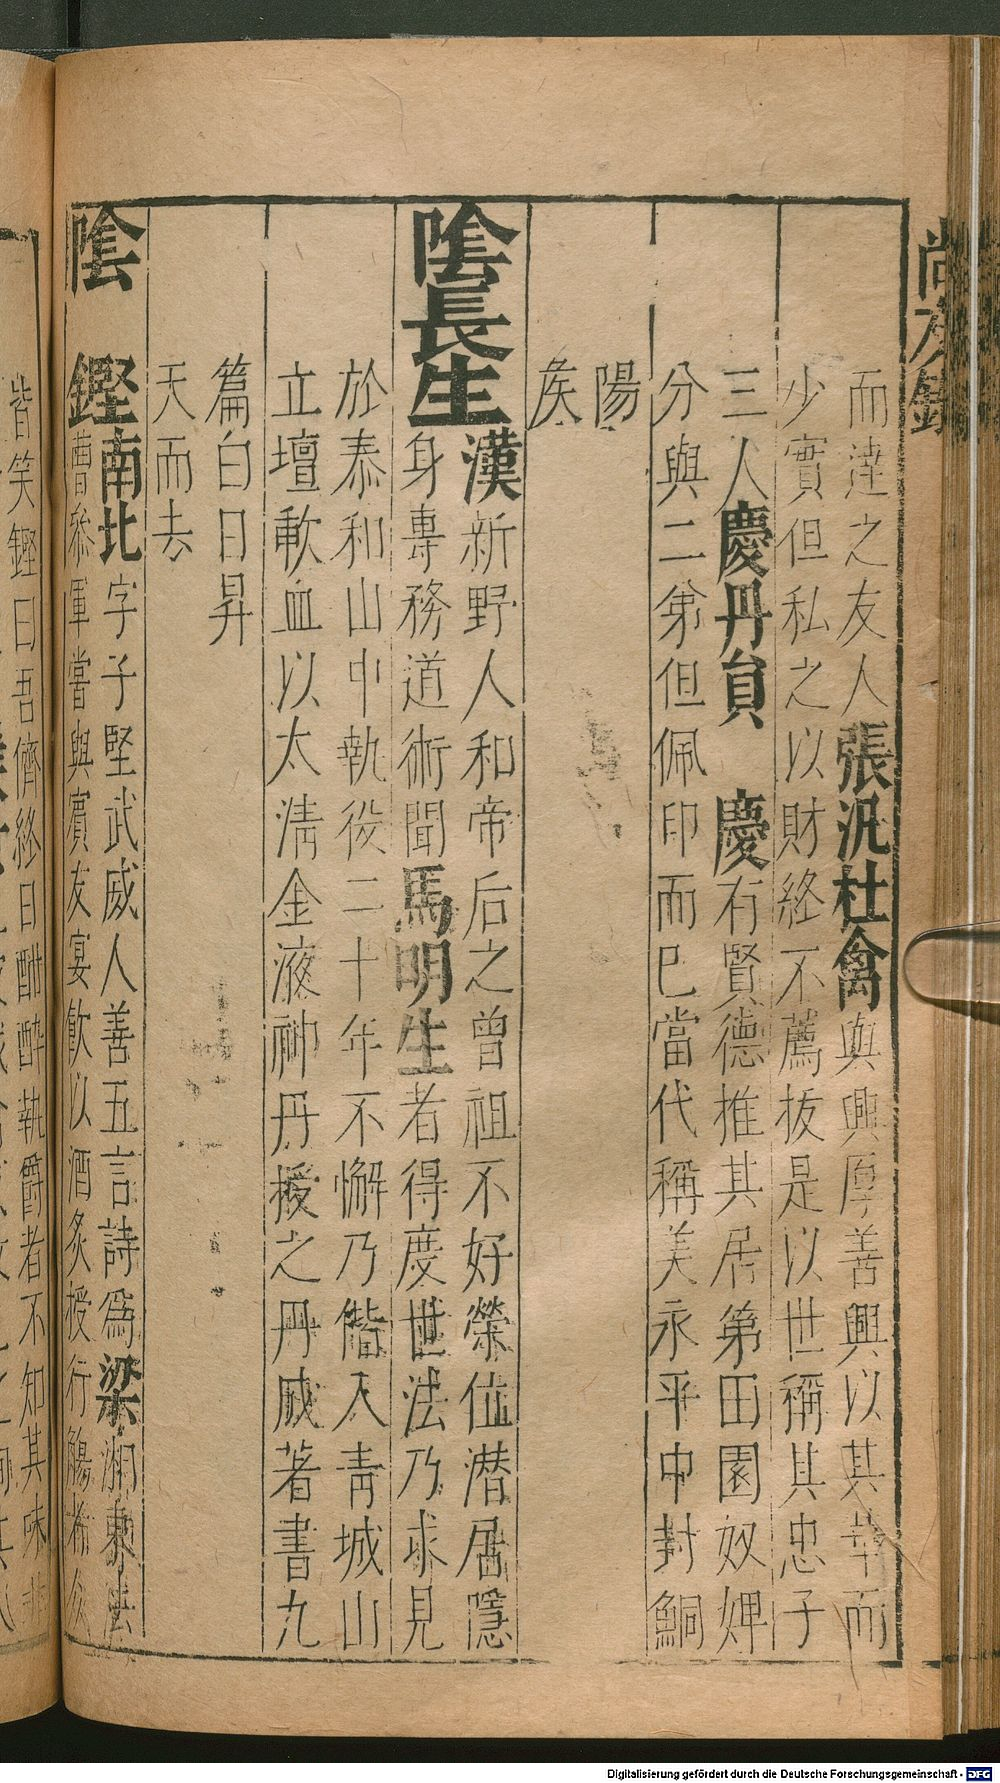 尚友錄
而達之友人張汜杜禽與興厚善興以其華而
少實但私之以財終不薦拔是以世稱其忠子
三人慶丹員 慶有賢德推其居第田園奴婢
分與二弟但佩印而已當代稱美永平中封鮦
陽
侯
陰長生漢新野人和帝后之曾祖不好榮位潜居隱
身專務道術聞馬明生者得度世法乃求見
於泰和山中執役二十年不懈乃偕入青城山
立壇歃血以太清金液神丹授之丹成著書九
篇白日昇
天而去
陰 鏗南北字子堅武威人善五言詩爲梁湘東法
曹叅軍嘗與賓友宴飲以酒炙授行觴者衆
皆笑鏗曰吾儕終日酣醉執爵者不知其味非
Digitalisierung gefördert durch die Deutsche Forschungsgemeinschaft - DFG